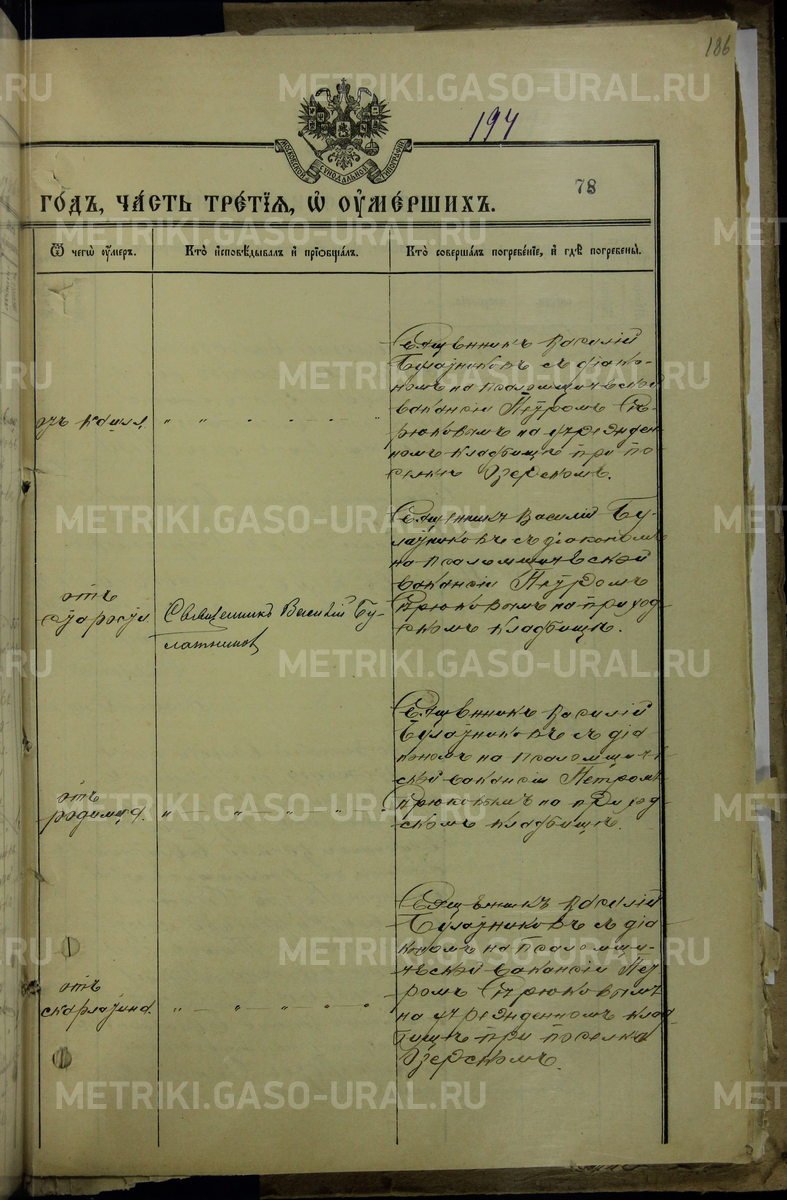 186
194
МОСКОВСКОЙ СѴНОДАЛЬНОЙ ТИПОГРАФІИ
78
ГОДЪ, ЧАСТЬ ТРЕТІѦ, Ѡ ОУМЕРШИХЪ.
Ѿ чегѡ оумеръ.
Кто исповѣдывалъ и пріобщалъ.
Кто совершалъ погребеніе, и гдѣ погребены.
отъ кашля
Священникъ Василій
Булатниковъ съ діако-
номъ на псаломщической
вакансіи Петромъ
на учрежден-
номъ кладбищѣ при по-
селкѣ Озерскомъ.
отъ
старости
Священникъ Василій Бу-
латников
Священникъ Василій Бу-
латниковъ съ діакономъ
на псаломщической
вакансіи Петромъ
на приход-
скомъ кладбищѣ.
отъ
родимца
Священникъ Василій
Булатниковъ съ діа
кономъ на псаломщиче
ской вакансіи Петромъ
на приход-
скомъ кладбищѣ.
отъ
скарлатина
Священникъ Василій
Булатниковъ съ діа-
кономъ на псаломщи-
ческой вакансіи Пет-
ромъ
на учрежденномъ клад-
бищѣ при поселкѣ
Озерскомъ.
METRIKI.GASO-URAL.RU